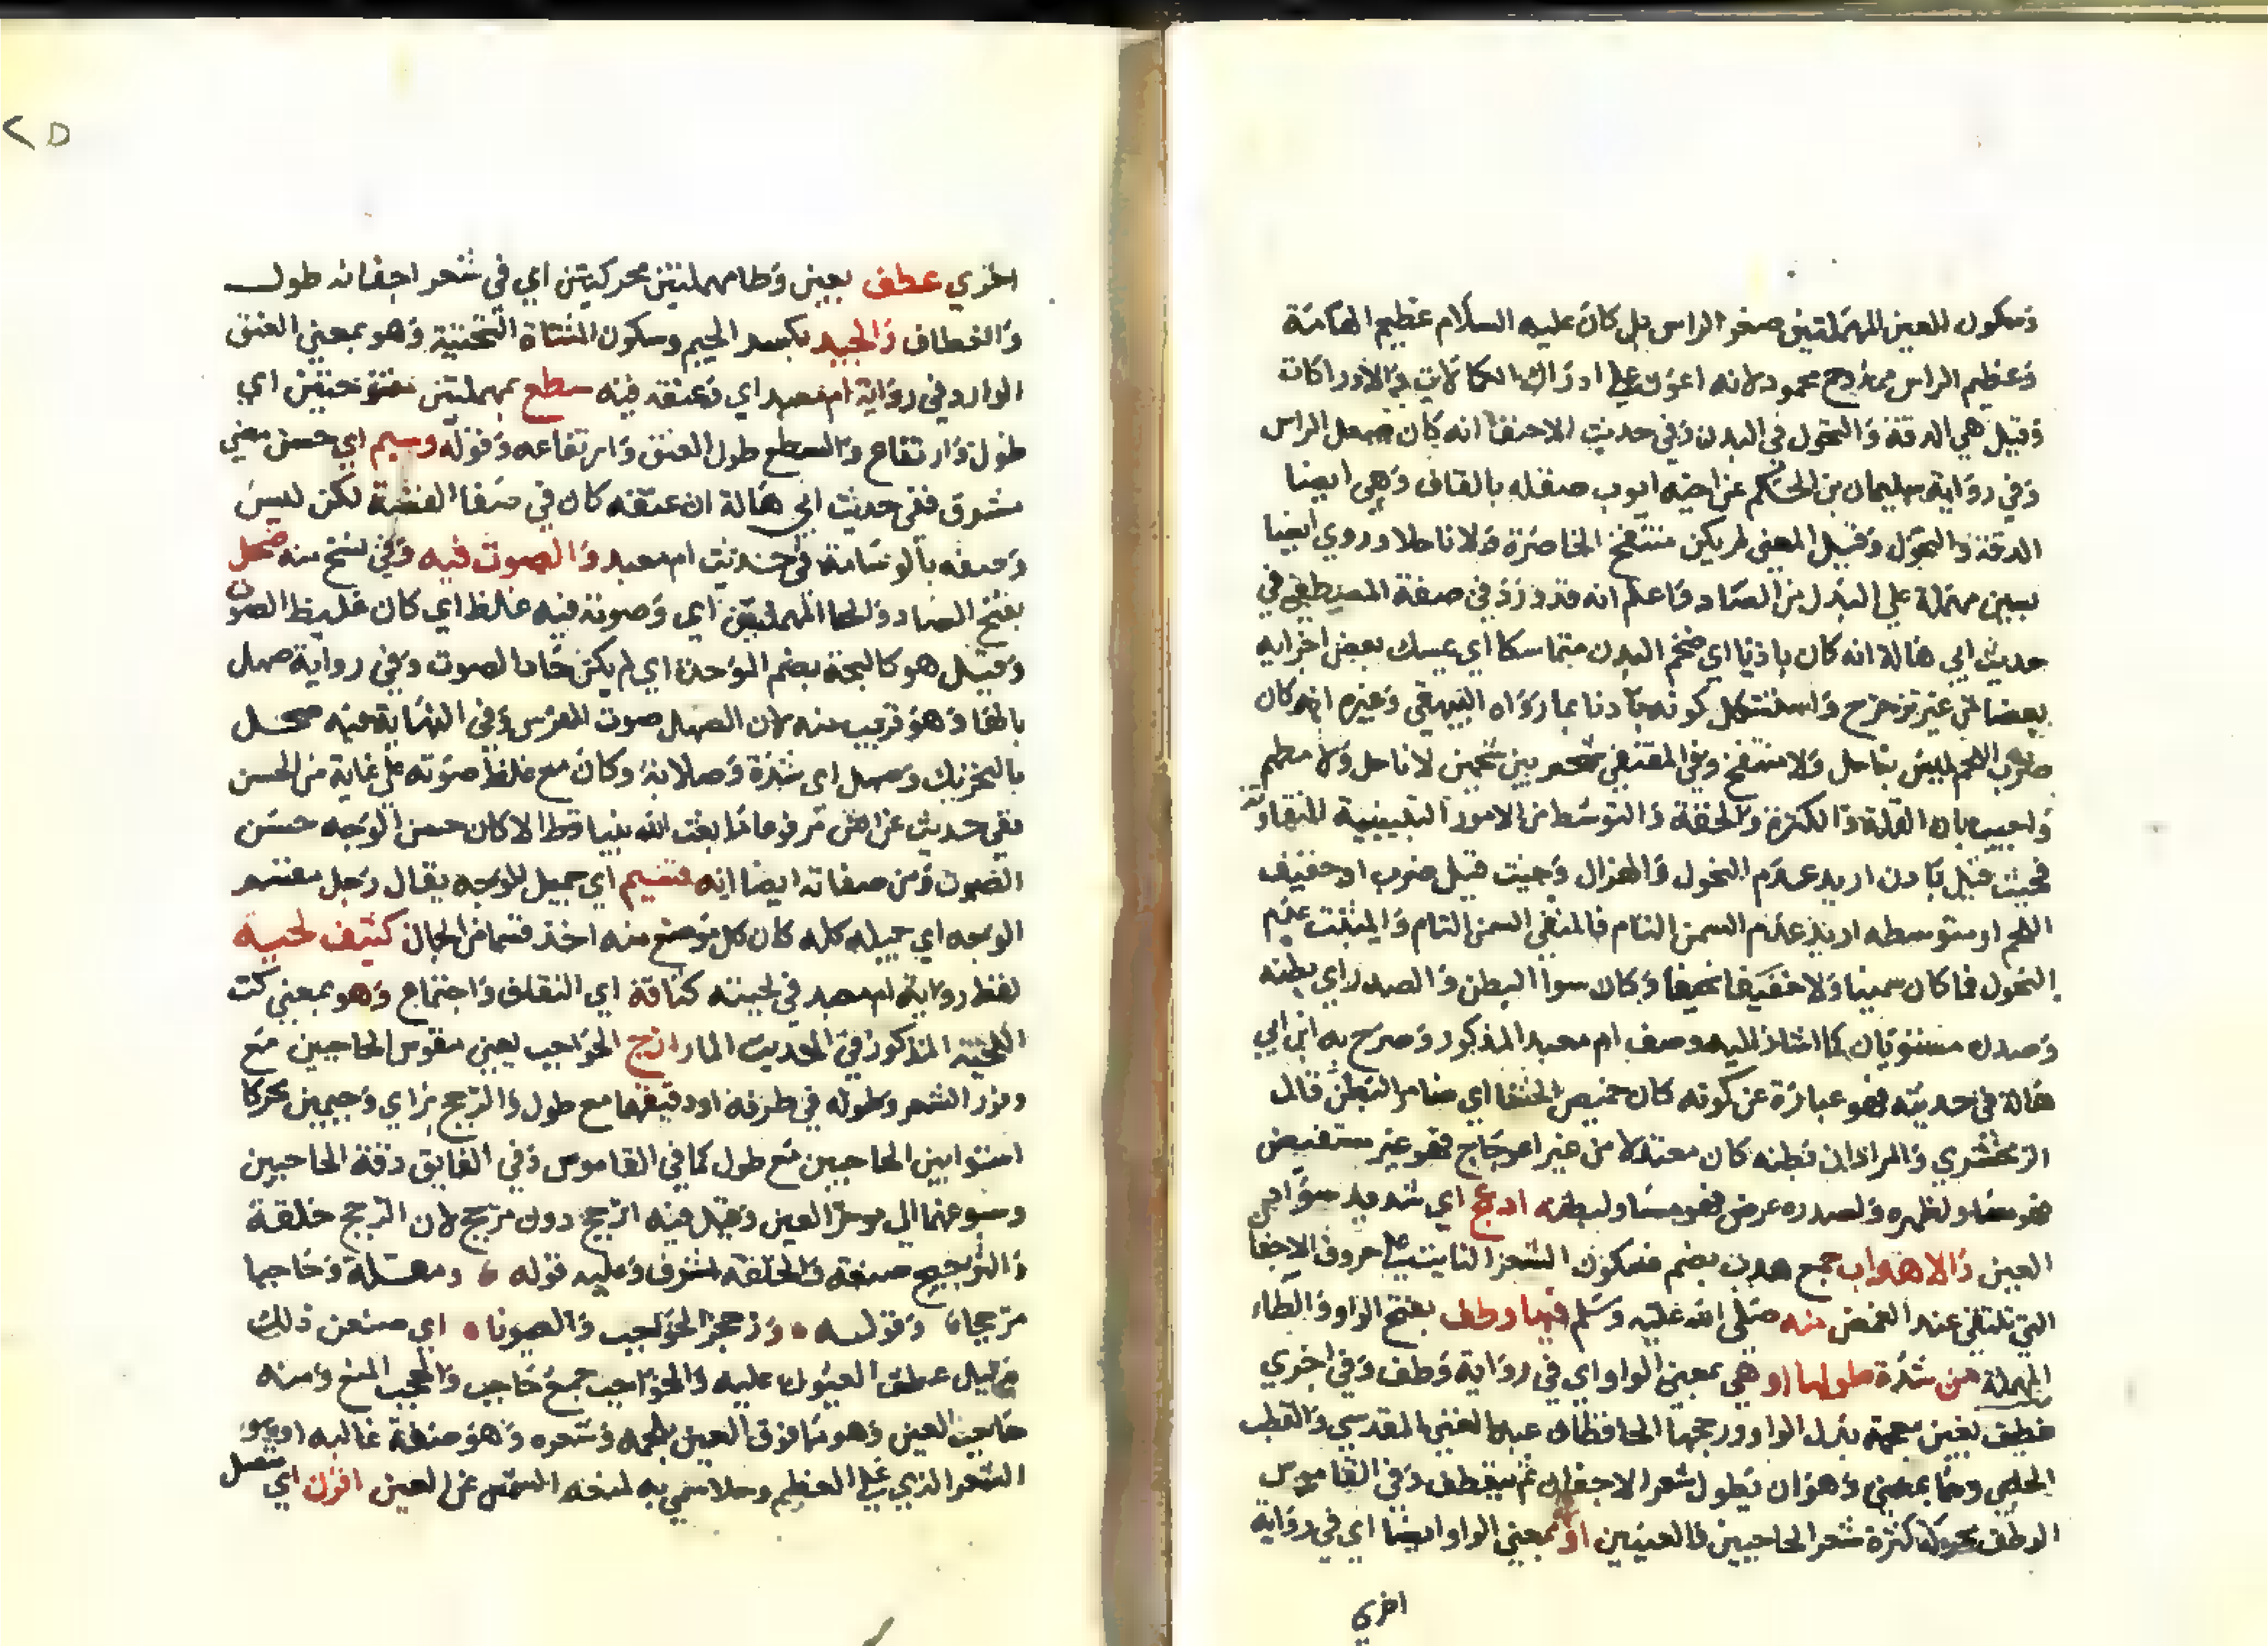 وسكون العين المهملتين صغر الراس بل كان عليه السلام عظيم الهامة
وعظيم الراس ممدوح محمود لانه اعون على ادراك الكمالات والادراكات
وقيل هي الدقة والنحول في البدن وفي حديث الاحنف انه كان صعل الراس
وفي رواية سليمان بن الحكم عن اخيه ايوب صقله بالقاف وهي ايضا
الدقة والنحول وقيل المعنى لم يكن منتفخ الخاصرة ولا ناحلا وروي ايضا
بسين مهملة على البدل من الصاد واعلم انه قد ورد في صفة المصطفى في
حديث ابي هالة انه كان بادنا اي ضخم البدن متماسكا اي يمسك بعض اجزايه
بعضا من غير ترجرج واستشكل كونه بادنا بما رواه البيهقي وغيره انه كان
ضرب اللحم ليس بناحل ولا منتفخ وفي المقتفى لحم بين لحمين لا ناحل ولا مطهم
واجيب بان القلة والكثرة والخفة والتوسط من الامور النسبية المتفاوتة
فحيث قيل بادن اريد عدم النحول والهزال وحيث قيل ضرب او خفيف
اللحم او متوسطه اريد عدم السمن التام فالمنفي السمن التام والمثبت عدم
النحول فما كان سمينا ولا خفيفا نحيفا وكان سواء البطن والصدر اي بطنه
وصدره مستويان كما اشار اليه وصف ام معبد المذكور وصرح به ابن ابي
هالة في حديثه فهو عبارة عن كونه كان خميص الحشا اي ضامر البطن قال
الزمخشري والمراد ان بطنه كان معتدلا من غير اعوجاج فهو غير مستفيض
فهو مساو لظهره ولصدره عرض فهو مساو لبطنه ادعج اي شديد سواد
العين والاهداب جمع هدب بضم فسكون الشعر النابت على حروف الاجفان
التي تلتقي عند الغمض منه صلى الله عليه وسلم فيها وطف بفتح الواو والطاء
المهملة من شدة طولها او هي بمعنى الواو اي في رواية وطف وفي اخرى
غطف بغين معجمة بدل الواو ورجحها الحافظان عبد الغني المقدسي والقطب
الحلبي وهما بمعنى وهو ان يطول شعر الاجفان ثم ينعطف وفي القاموس
الوطف محركة كثرة شعر الحاجبين والعينين او بمعنى الواو ايضا اي في رواية
اخري
اخري عطف بعين وطا مهملتين محركتين اي في شعر اجفانه طول
والغطاف والجيد بكسر الجيم وسكون المثناة التحتية وهو بمعنى العنق
الوارد في رواية ام معبد اي وعنقه فيه سطع بمهملتين مفتوحتين اي
طول وارتفاع والسطع طول العنق وارتفاعه وقوله وسيم اي حسن مضي
مشرق ففي حديث ابي هالة ان عنقه كان في صفا الفضة لكن ليس
وصفه بالوسامة في حديث ام معبد والصوت فيه وفي نسخ منه صحل
بفتح الصاد والحا المهملتين اي وصوته فيه غلظ اي كان غليظ الصوت
وقيل هو كالبحة بضم الموحدة اي لم يكن حاد الصوت وفي رواية صهل
بالها وهو قريب منه لان الصهل صوت الفرس وفي النهاية فيه صحل
بالتحريك وصهل اي شدة وصلابة وكان مع غلظ صوته على غاية من الحسن
ففي حديث عن انس مرفوعا ما بعث الله نبيا قط الا كان حسن الوجه حسن
الصوت ومن صفاته ايضا انه قسيم اي جميل الوجه يقال رجل مقسم
الوجه اي جميله كله كان كل موضع منه اخذ قسما من الجمال كثيف لحية
لفظ رواية ام معبد في لحيته كثافة اي التفاف واجتماع وهو بمعنى كث
اللحية المذكور في الحديث المار ازج الحواجب يعني مقوس الحاجبين مع
وفور الشعر وطوله في طرفه او دقيقهما مع طول والزجج بزاي وجيمين محركا
استوا بين الحاجبين مع طول كما في القاموس وفي الفايق دقة الحاجبين
وسبوغهما الى موخر العين وقيل فيه ازجج دون مزجج لان الزجج خلقة
والتزجيج صنعة والخلقة اشرف وعليه قوله ومقلة وحاجبا
مزججا وقوله وزججن الحواجب والعيونا اي صنعن ذلك
بدليل عطف العيون عليه والحواجب جمع حاجب والحجب المنع ومنه
حاجب العين وهو ما فوق العين بلحمه وشعره وهو صفة غالبه او هو
الشعر الذي على العظم وحده سمي به لمنعه الشمس عن العين اقرن اي متصل